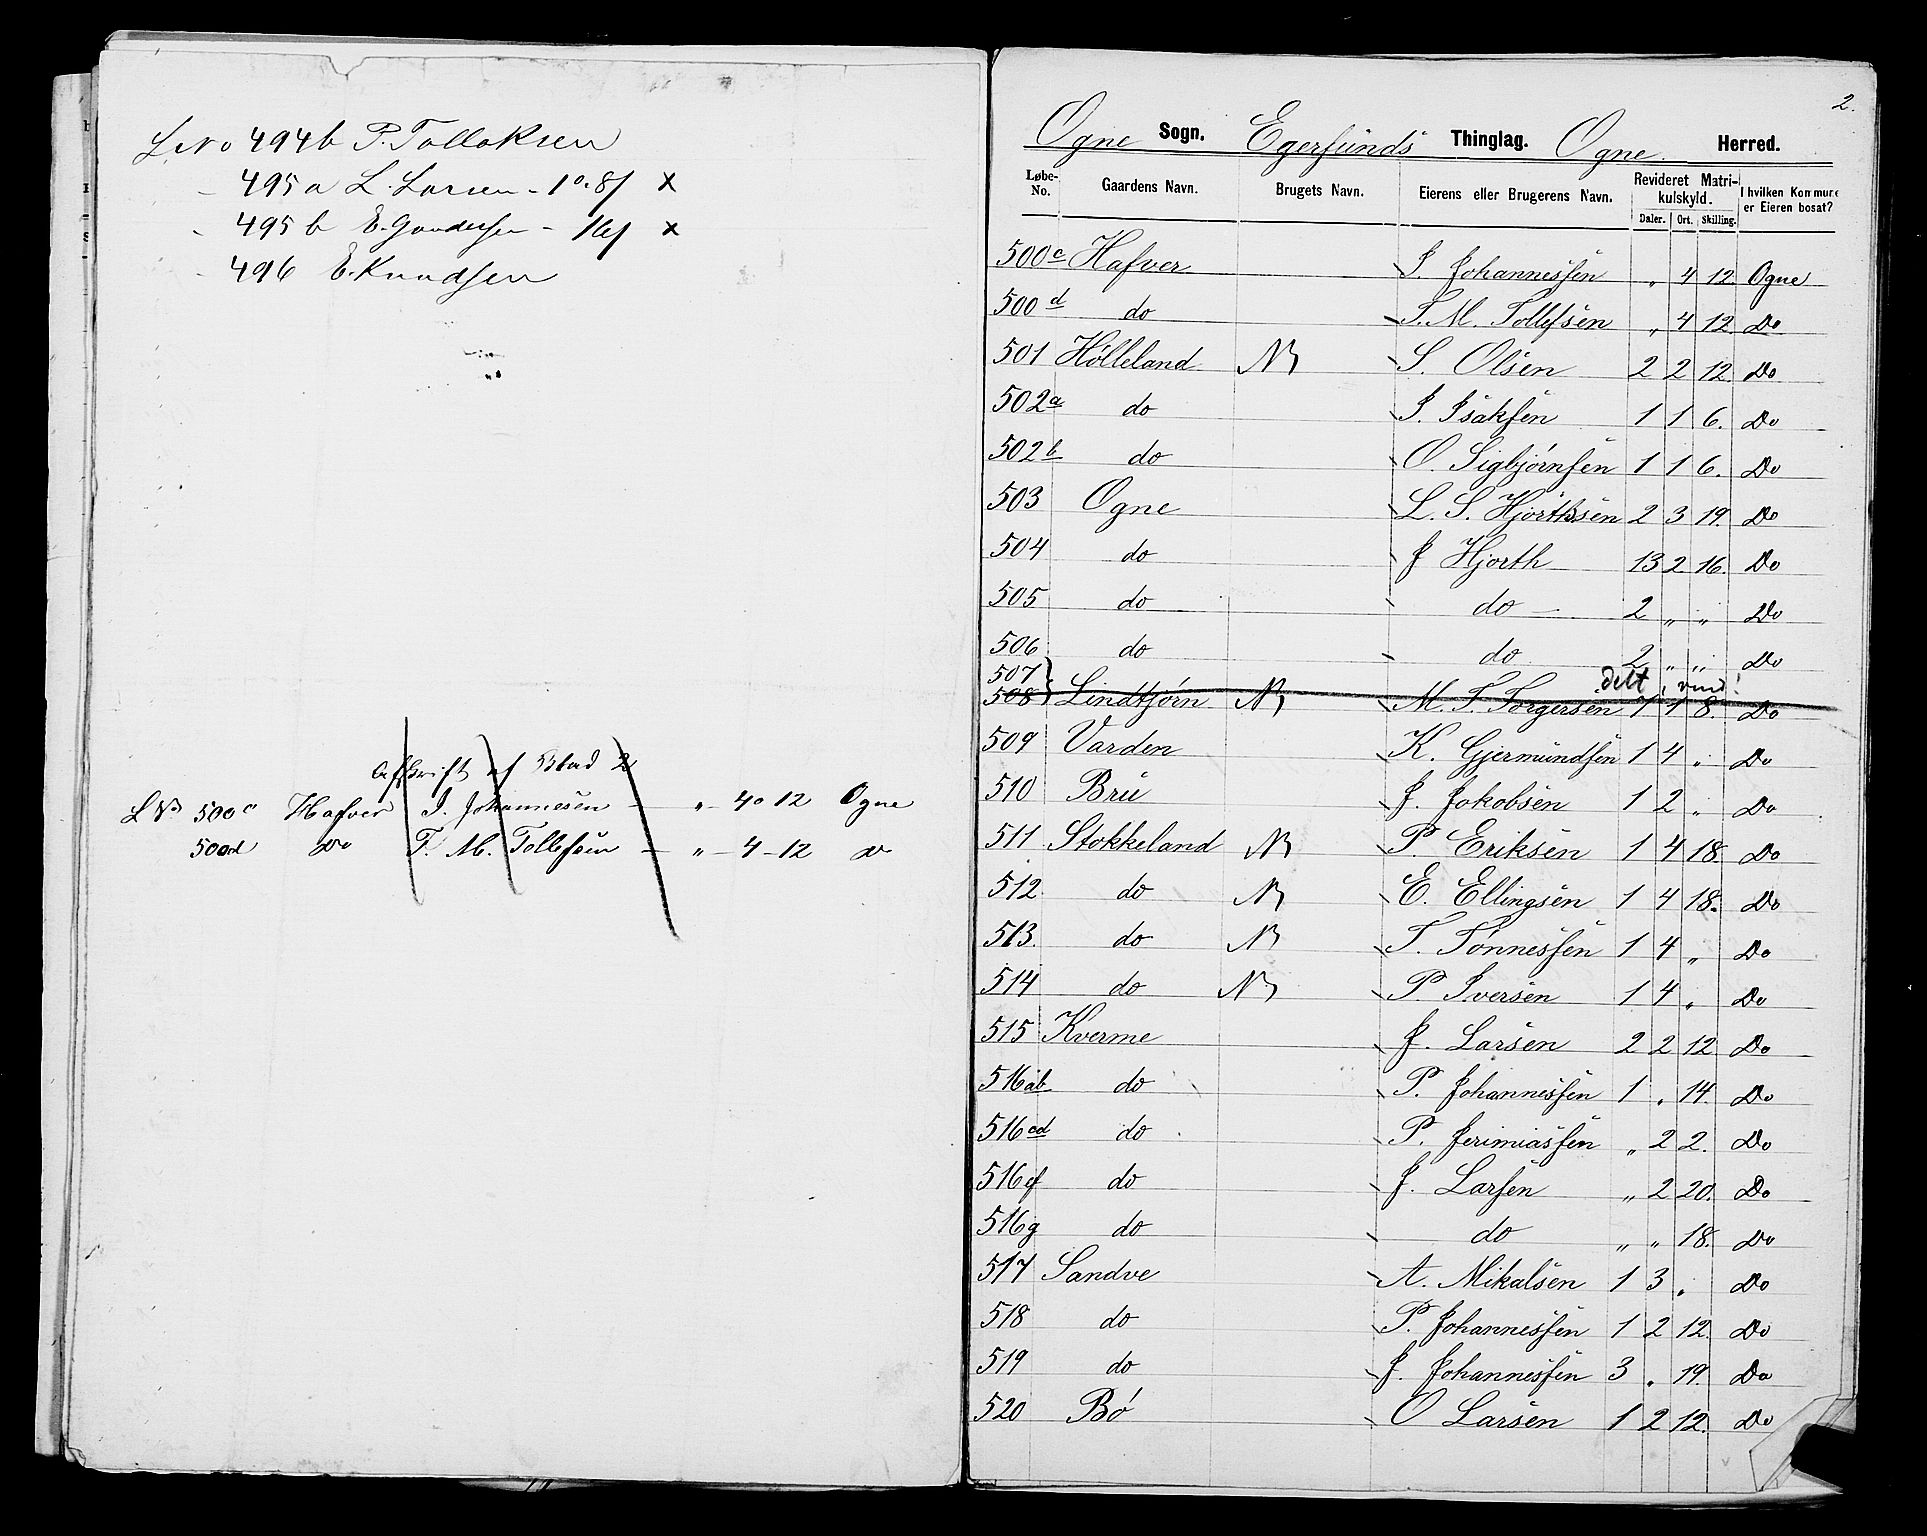 L No 494b P. Tollaksen
- 495a L. Larsen - 1 0. 8 X
- 495b E. Gundersen - X
- 496 E. Knudsen
Afskrift af Blad 2
L No 500c Hafver I. Johannesen — „ - 4 - 12 Ogne
500d do T. M. Tollefsen — „ - 4 - 12 do
2.
Ogne Sogn. Egersunds Thinglag. Ogne Herred.
Løbe-No. Gaardens Navn. Brugets Navn. Eierens eller Brugerens Navn. Revideret Matrikulskyld. Daler. Ort. Skilling. I hvilken Kommune er Eieren bosat?
500c Hafver I. Johannesſen „ 4 12 Ogne
500d do T. M. Tollefsen „ 4 12 Do
501 Hølleland S. Olsen 2 2 12 Do
502a do I. Isakſen 1 1 6. Do
502b do O. Sigbjørnſen 1 1 6. Do
503 Ogne L. S. Hjorthsen 2 3 19. Do
504 do J Hjorth 13 2 16. Do
505 do do 2 „ „ Do
506 do do 2 „ „ Do
507
508 Lindtjørn M. T. Torgersen 1 1 8. Do
delt
509 Varden K. Gjermundſen 1 4 „ Do
510 Bru J. Jakobsen 1 2 „ Do
511 Stokkeland P. Eriksen 1 4 18. Do
512. do E. Ellingsen 1 4 18. Do
513. do T. Tønnesſen 1 4 „ Do
514 do P. Iversen 1 4 „ Do
515 Kverme J. Larsen 2 2 12 Do
516ab do P. Johannesſen 1 „ 14. Do
516cd do P. Jerimiasſen „ 2 2. Do
516ef do J. Larſen „ 2 20. Do
516g do do „ „ 18. Do
517 Sandve A. Mikalsen 1 3 „ Do
518 do P. Johannesſen 1 2 12. Do
519 do J. Johannesſen 3 „ 19. Do
520 Bø O Larsen 1 2 12. Do